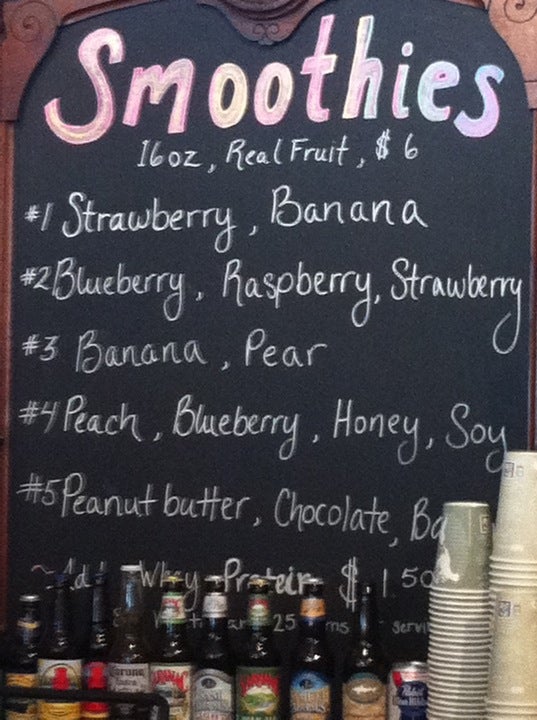 Smoothies
16oz, Real Fruit, $6
#1 Strawberry, Banana
#2 Blueberry, Raspberry, Strawberry
#3 Banana, Pear
#4 Peach, Blueberry, Honey, Soy
#5 Peanut butter, Chocolate, Ba
~Add Whey Protein $1.50
25
Corona